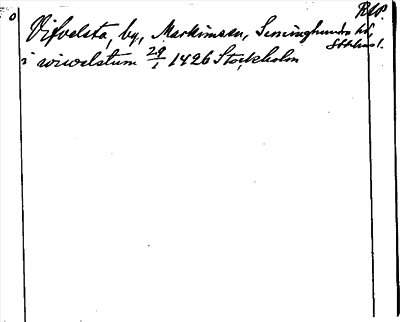 RAP.
Vifvelsta, by, Markimsskn, Seminghundra hd,
Sthlms l.
i wiwelstum 29/1 1426 Stockholm